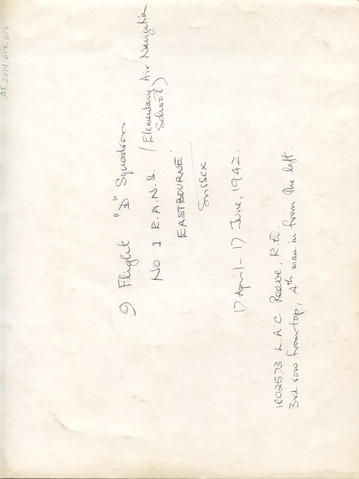 9 Flight "D" Squadron
No 1 E.A.N.S. (Elementary Air Navigation School)
EASTBOURNE
Sussex
17 April - 17 June, 1942.
1602573 L.A.C. Reeve, R.E.
3rd row from top, 4th man in from the left